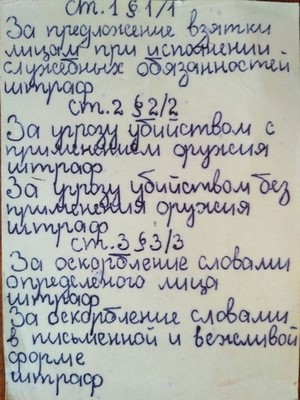 ст.1 § 1/1
За предложение взятки
лицам при исполнении
служебных обязанностей
штраф
ст.2 § 2/2
За угрозу убийством с
применением оружия
штраф
За угрозу убийством без
применения оружия
штраф
ст.3 § 3/3
За оскорбление словами
определеного лица
штраф
За оскорбление словами
в письменной и вежливой
форме
штраф